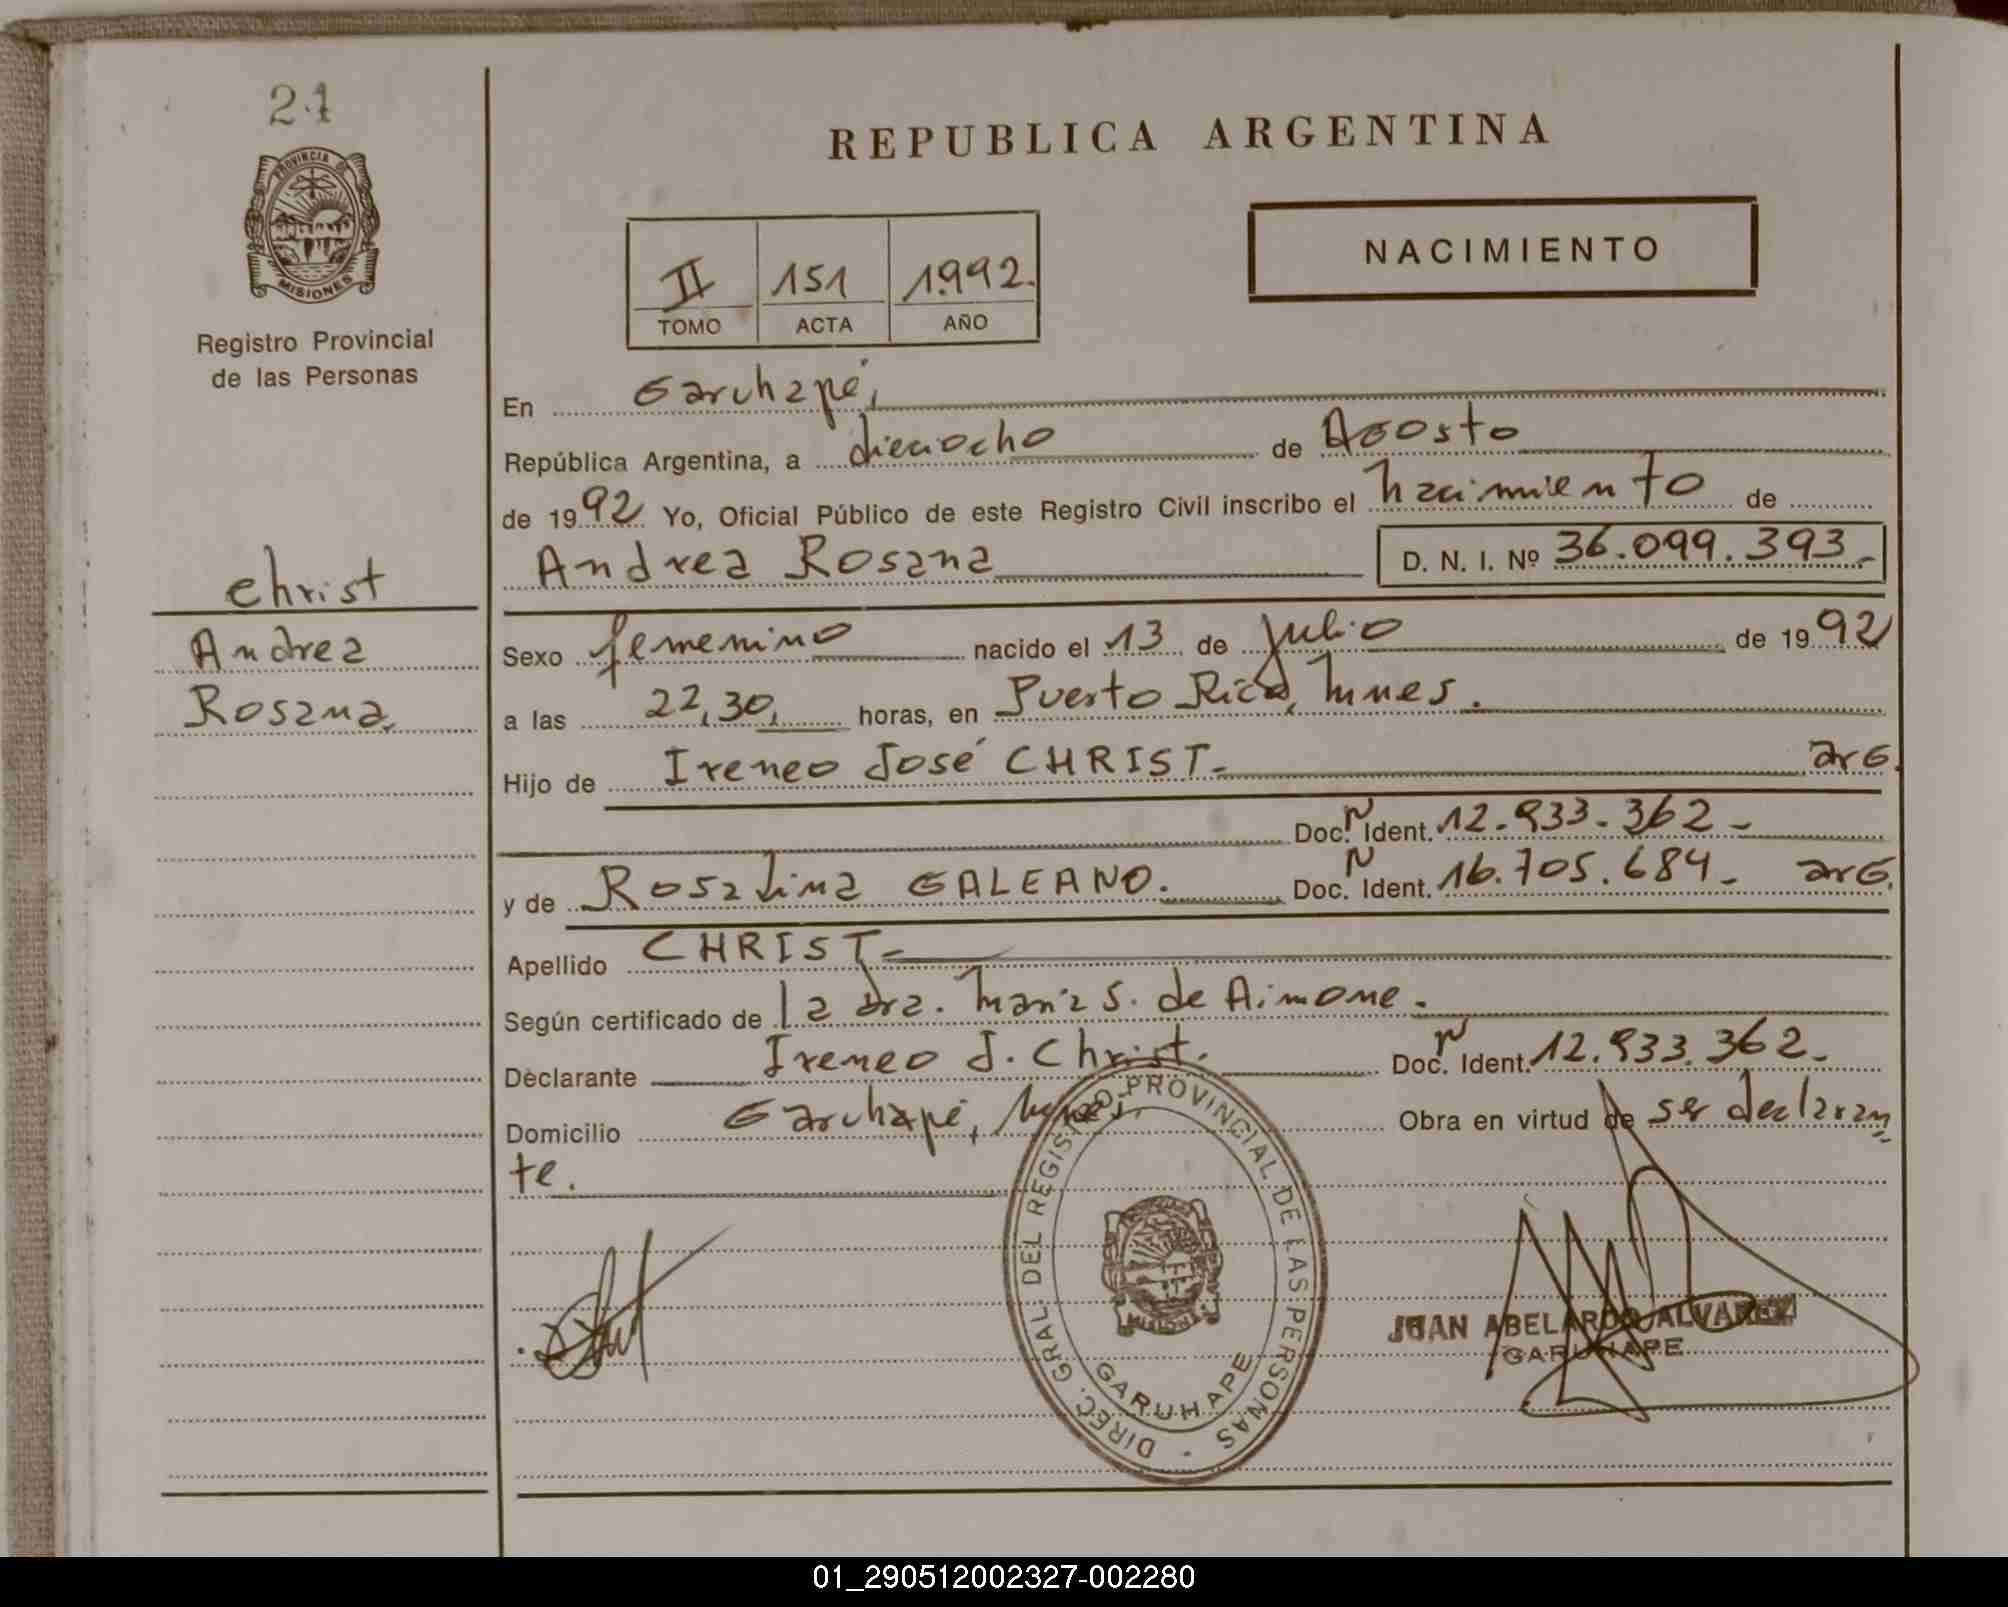 21
PROVINCIA DE
MISIONES
Registro Provincial
de las Personas
Christ
Andrea
Rosana.
REPUBLICA ARGENTINA
NACIMIENTO
II 151 1.992.
TOMO ACTA AÑO
En Garuhapé,
República Argentina, a dieciocho de Agosto
de 1992 Yo, Oficial Público de este Registro Civil inscribo el nacimiento de
Andrea Rosana D. N. I. Nº 36.099.393.-
Sexo femenino nacido el 13 de Julio de 1992
a las 22,30, horas, en Puerto Rico, Mnes.
Hijo de Ireneo José CHRIST- arg.
Doc. N Ident. 12.933.362-
y de Rosalina GALEANO. Doc. N Ident. 16.705.684- arg.
Apellido CHRIST-
Según certificado de la dra. María S. de Aimone.
Declarante Ireneo J. Christ. Doc. N Ident. 12.933.362-
Domicilio Garuhapé, Mnes, Obra en virtud de ser declaran
te.
DIREC. GRAL. DEL REGISTRO PROVINCIAL DE LAS PERSONAS
MISIONES
GARUHAPE
JUAN ABELARDO ALVAREZ
GARUHAPE
01_290512002327-002280